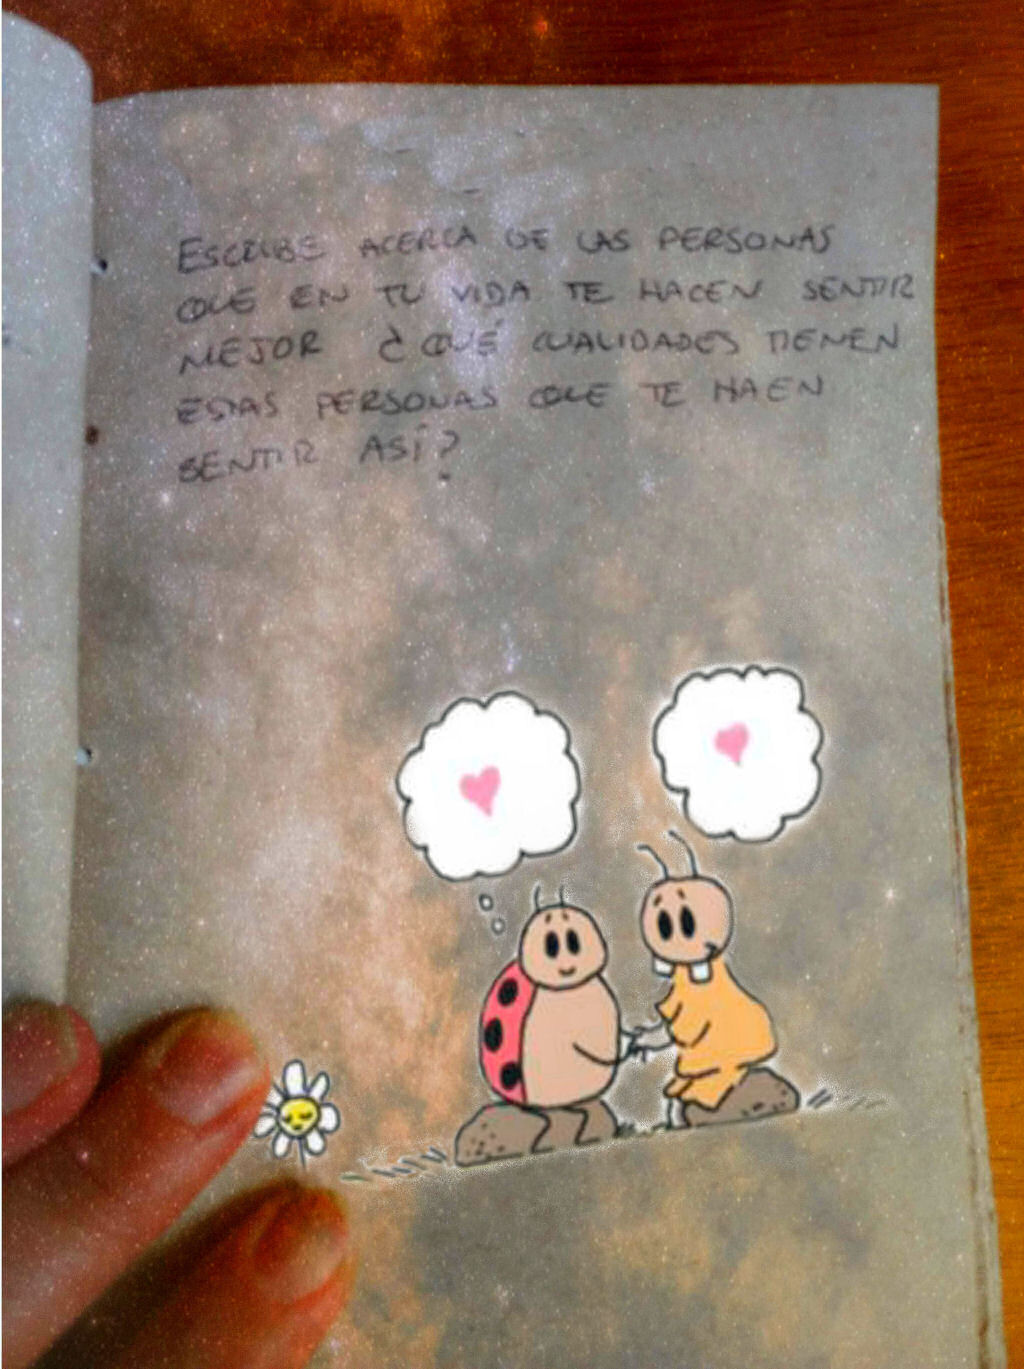 ESCRIBE ACERCA DE LAS PERSONAS
QUE EN TU VIDA TE HACEN SENTIR
MEJOR ¿QUÉ CUALIDADES TIENEN
ESTAS PERSONAS QUE TE HAEN
SENTIR ASÍ?